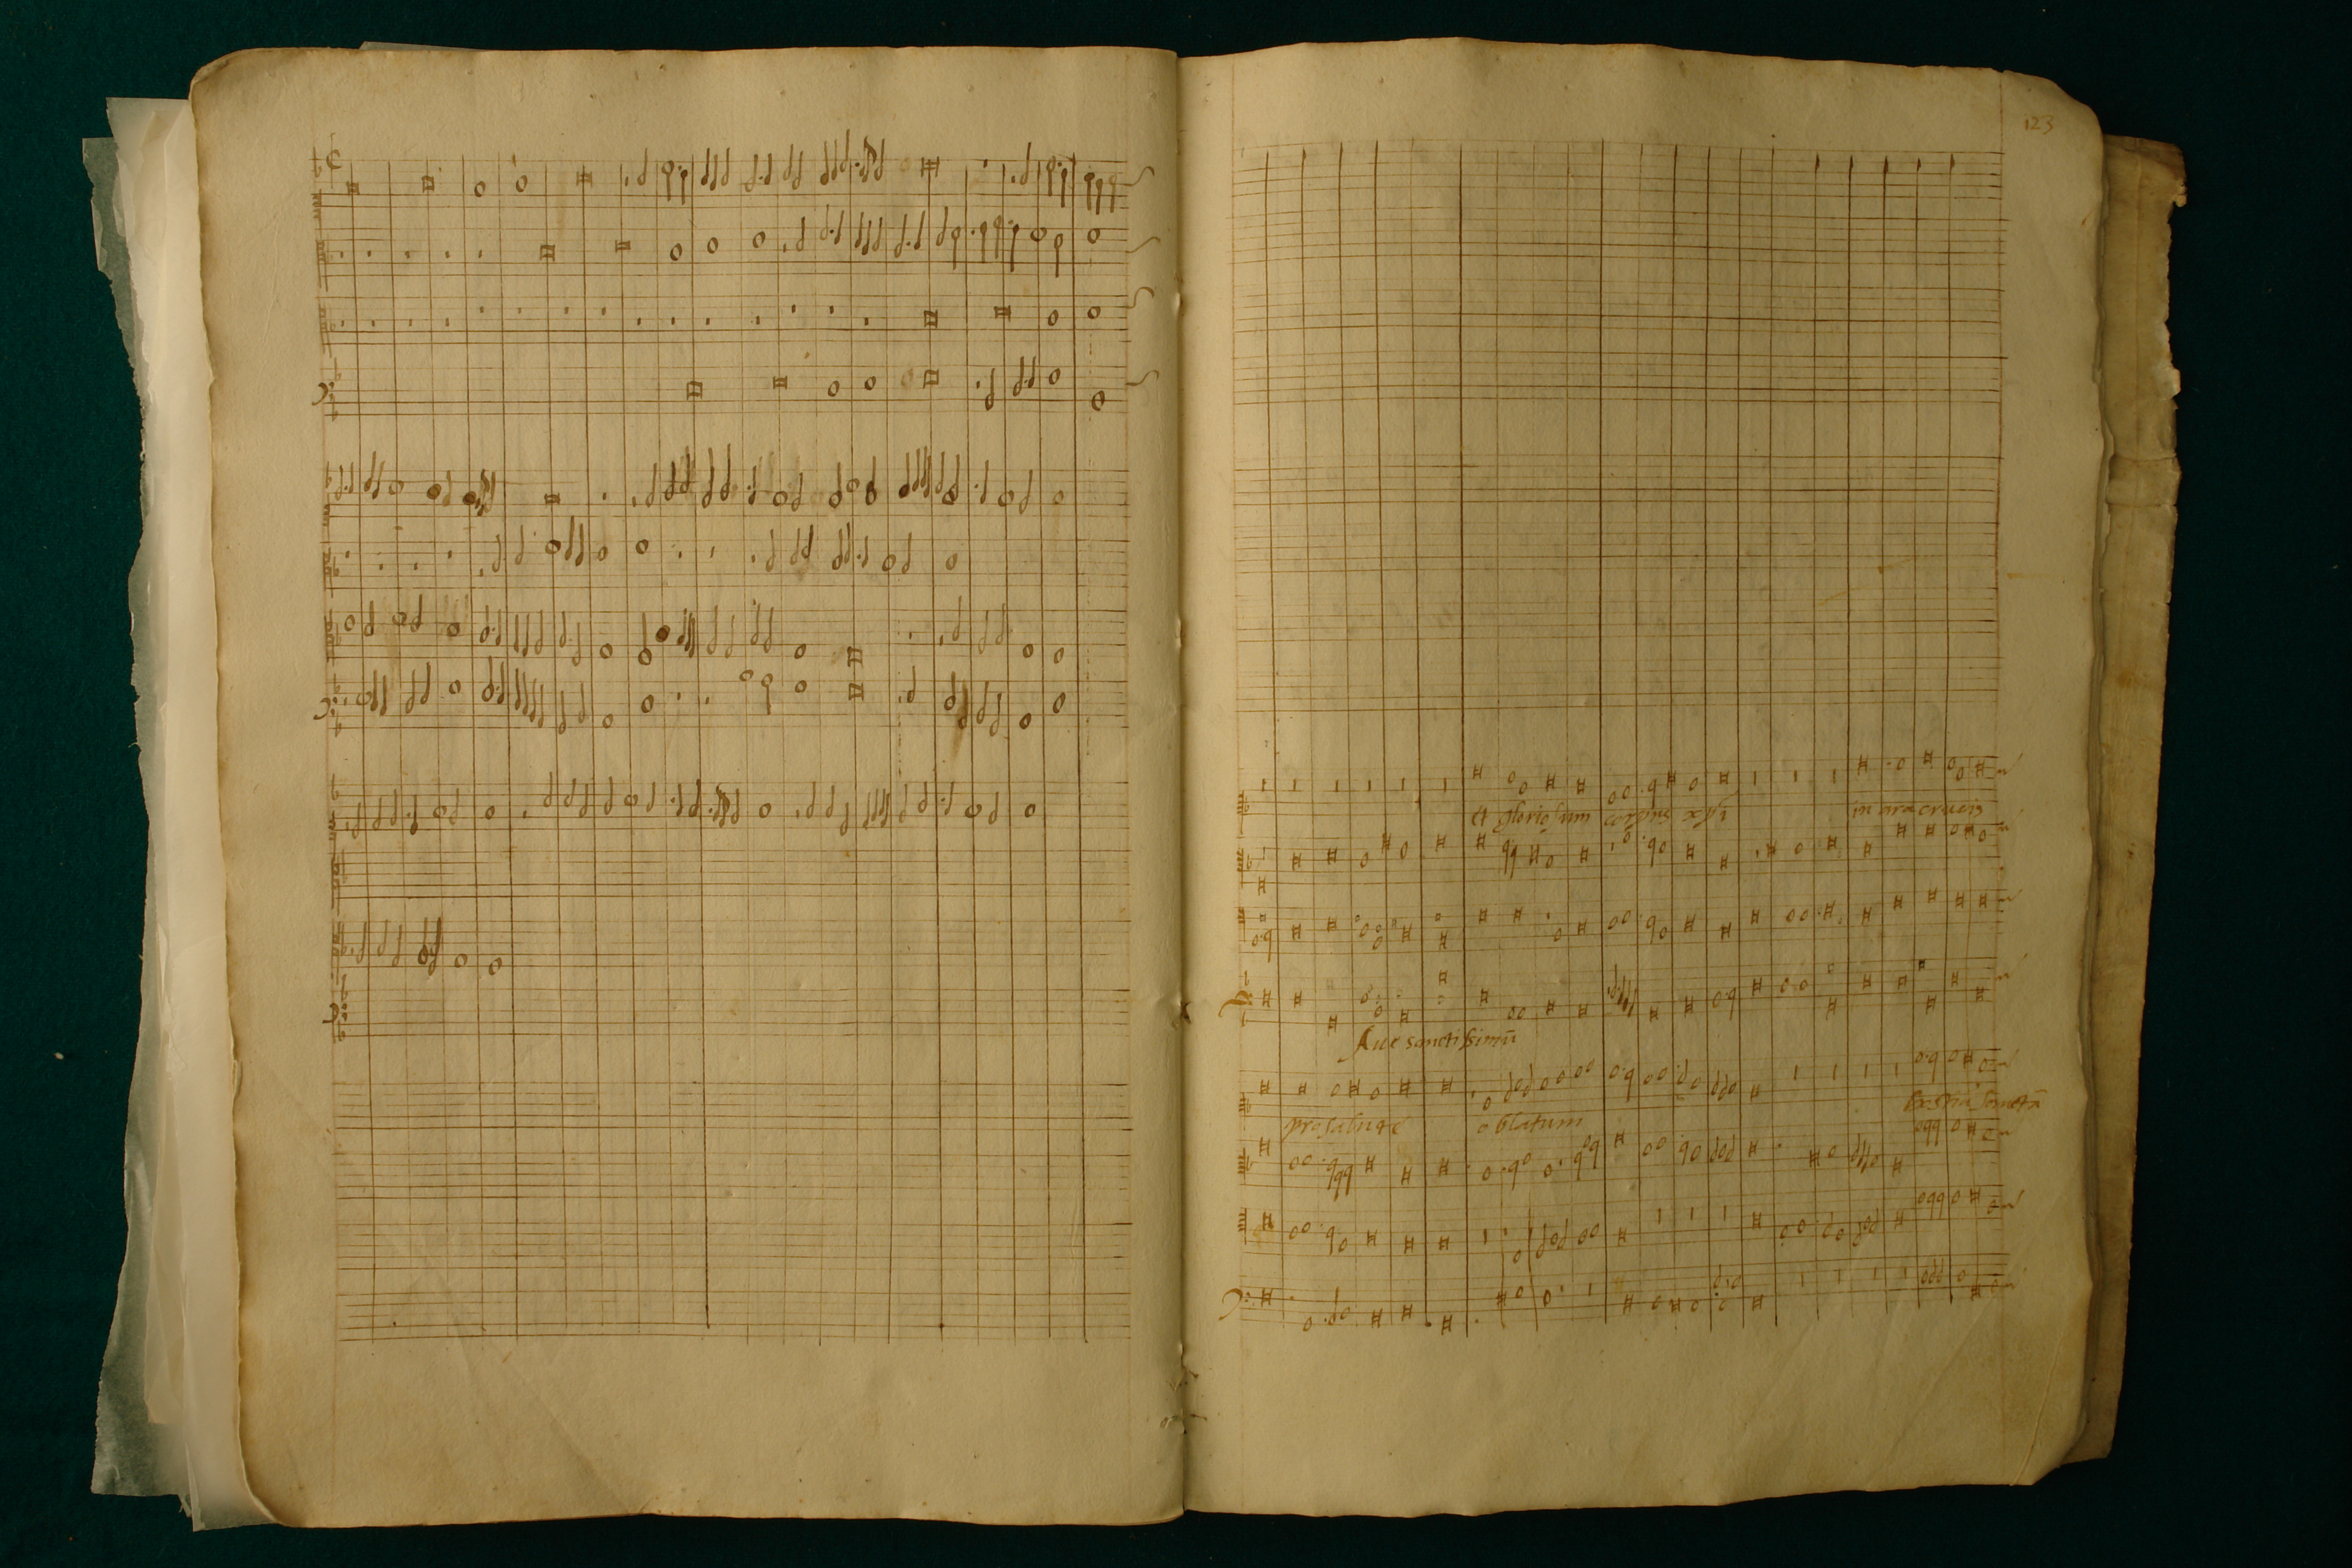 123
et gloriosum corpus xpi in ara crucis
Aue sanctissimū
pro salute oblatum